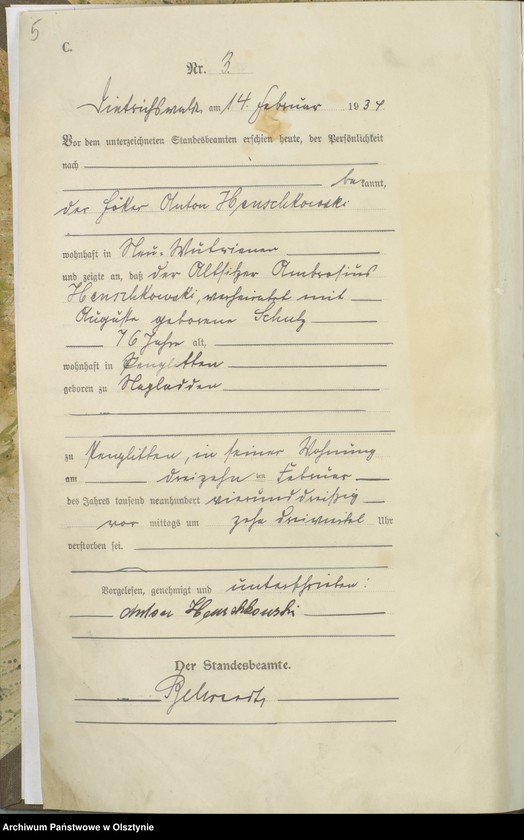 5
C.
Nr. 3.
Dietrichswalde, am 14. Februar 1934
Vor dem unterzeichneten Standesbeamten erschien heute, der Persönlichkeit
nach
bekannt,
der Anton Henschkowski
wohnhaft in Neu-Wuttrienen
und zeigte an, daß der Altsitzer Ambrosius
Henschkowski, verheiratet mit
Auguste geborene Schulz
76 Jahre alt,
wohnhaft in Penglitten
geboren zu Nagladden
zu Penglitten, in seiner Wohnung
am dreizehn ten Februar
des Jahres tausend neunhundert vierunddreißig
vor mittags um zehn dreiviertel Uhr
verstorben sei.
Vorgelesen, genehmigt und unterschrieben:
Anton Henschkowski
Der Standesbeamte.
Archiwum Państwowe w Olsztynie